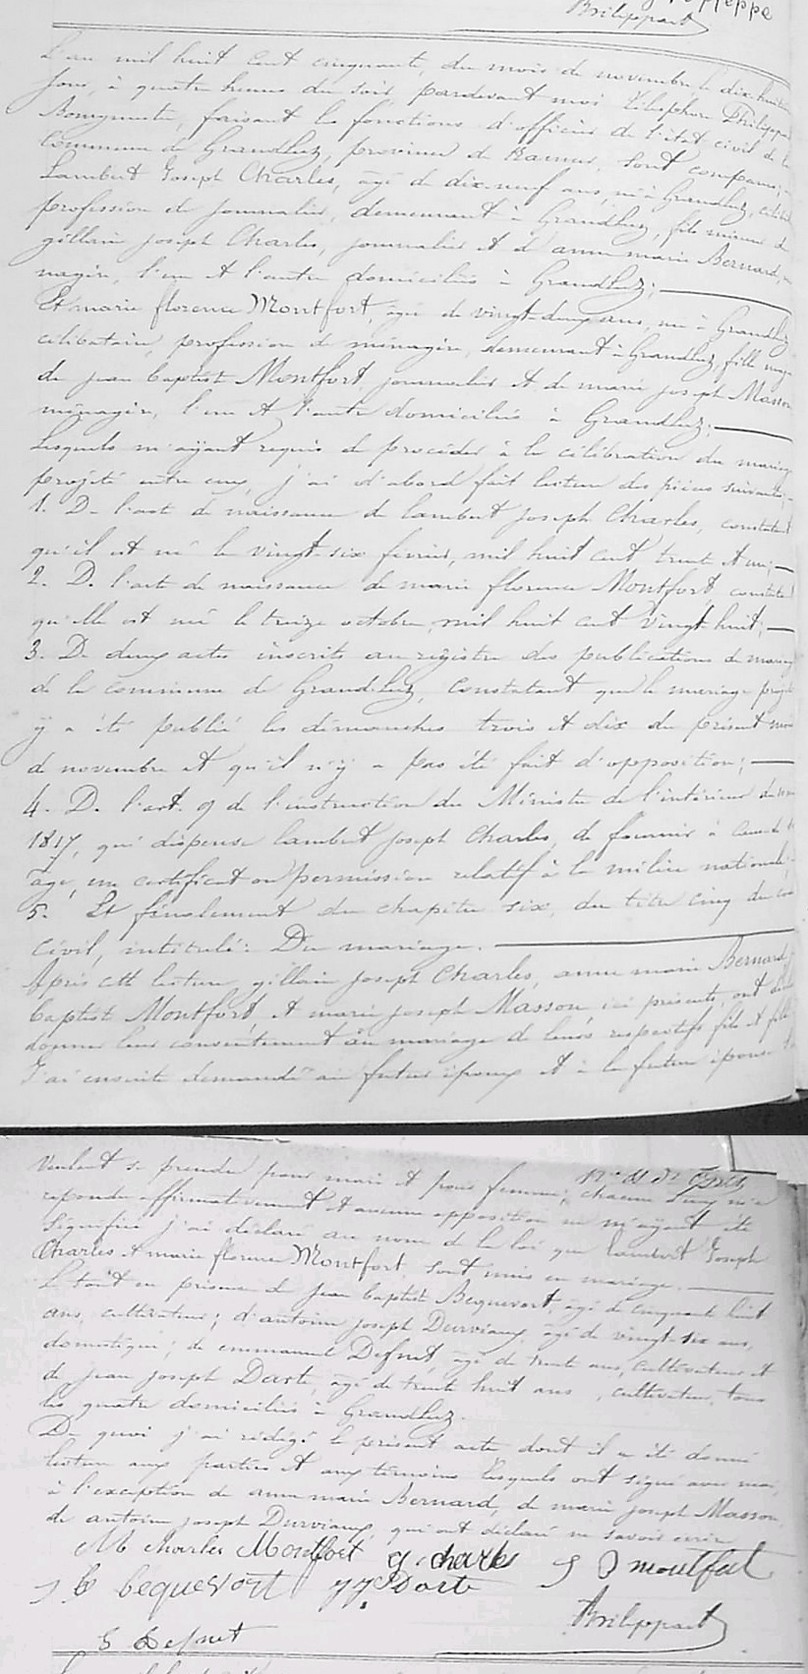 Philippart
L'an mil huit cent cinquante, du mois de novembre, le dix-huitième
jour, à quatre heures du soir, pardevant moi Télesphore Philippart
Bourgmestre, faisant les fonctions d'officier de l'état civil de la
commune de Grandleez, province de Namur, sont comparus,
Lambert Joseph Charles, âgé de dix-neuf ans, né à Grandleez, célib
profession de journalier, demeurant à Grandleez, fils mineur de
gillain joseph Charles, journalier et de anne marie Bernard,
nagère, l'un et l'autre domiciliés à Grandleez;
Et marie florence Montfort, âgé de vingt-deux ans, né à Grandleez
célibataire, profession de ménagère, demeurant à Grandleez, fille maj
de jean baptist Montfort, journalier et de marie joseph Masson
ménagère, l'un et l'autre domiciliés à Grandleez;
Lesquels m'ayant requis de procéder à la célébration du mariage
projeté entre eux, j'ai d'abord fait lecture des pièces suivantes,
1. De l'acte de naissance de lambert joseph Charles, constatant
qu'il est né le vingt-six février, mil huit cent trente et un;
2. De l'acte de naissance de marie florence Montfort, constatant
qu'elle est née le treize octobre, mil huit cent vingt-huit;
3. De deux actes inscrits au régistre des publications de mariage
de la commune de Grand-leez, constatant que le mariage projeté
y a été publié les dimanches trois et dix du présent mois
de novembre et qu'il n'y a pas été fait d'opposition;
4. De l'art. 9 de l'instruction du Ministre de l'intérieur du
1817, qui dispense lambert joseph Charles, de fournir à cause de
âge, un certificat ou permission relatif à la milice nationale
5. Et finalement du chapitre six, du titre cinq du co
civil, intitulé: Du mariage.
Après cette lecture, gillain joseph Charles, anne marie Bernard,
baptist Montfort, et marie joseph Masson, ici présents, ont
donner leur consentement au mariage de leurs respectifs fils et fille
J'ai ensuite demandé au futur époux et à la future épouse
Veulent se prendre pour mari et pour femme; chacun d'eux m'a
répondu affirmativement et aucune opposition ne m'ayant été
signifiée j'ai déclaré au nom de la loi que lambert Joseph
Charles et marie florence Montfort, sont unis en mariage.
Le tout en présence de Jean baptist Becquevort, âgé de cinquante huit
ans, cultivateur; d'antoine joseph Durviaux, âgé de vingt-six ans,
domestique; de emmanuel Defnet, âgé de trente ans, cultivateur et
de jean joseph Darte, âgé de trente huit ans, cultivateur, tous
les quatre domiciliés à Grandleez.
De quoi j'ai rédigé le présent acte dont il a été donné
lecture aux parties et aux témoins lesquels ont signé avec moi,
à l'exception de anne marie Bernard, de marie joseph Masson,
de antoine joseph Durviaux, qui ont déclaré ne savoir écrire.
Charles Montfort g. charles J B montfort
J B becquevort J J Darte
Philippart
E Defnet